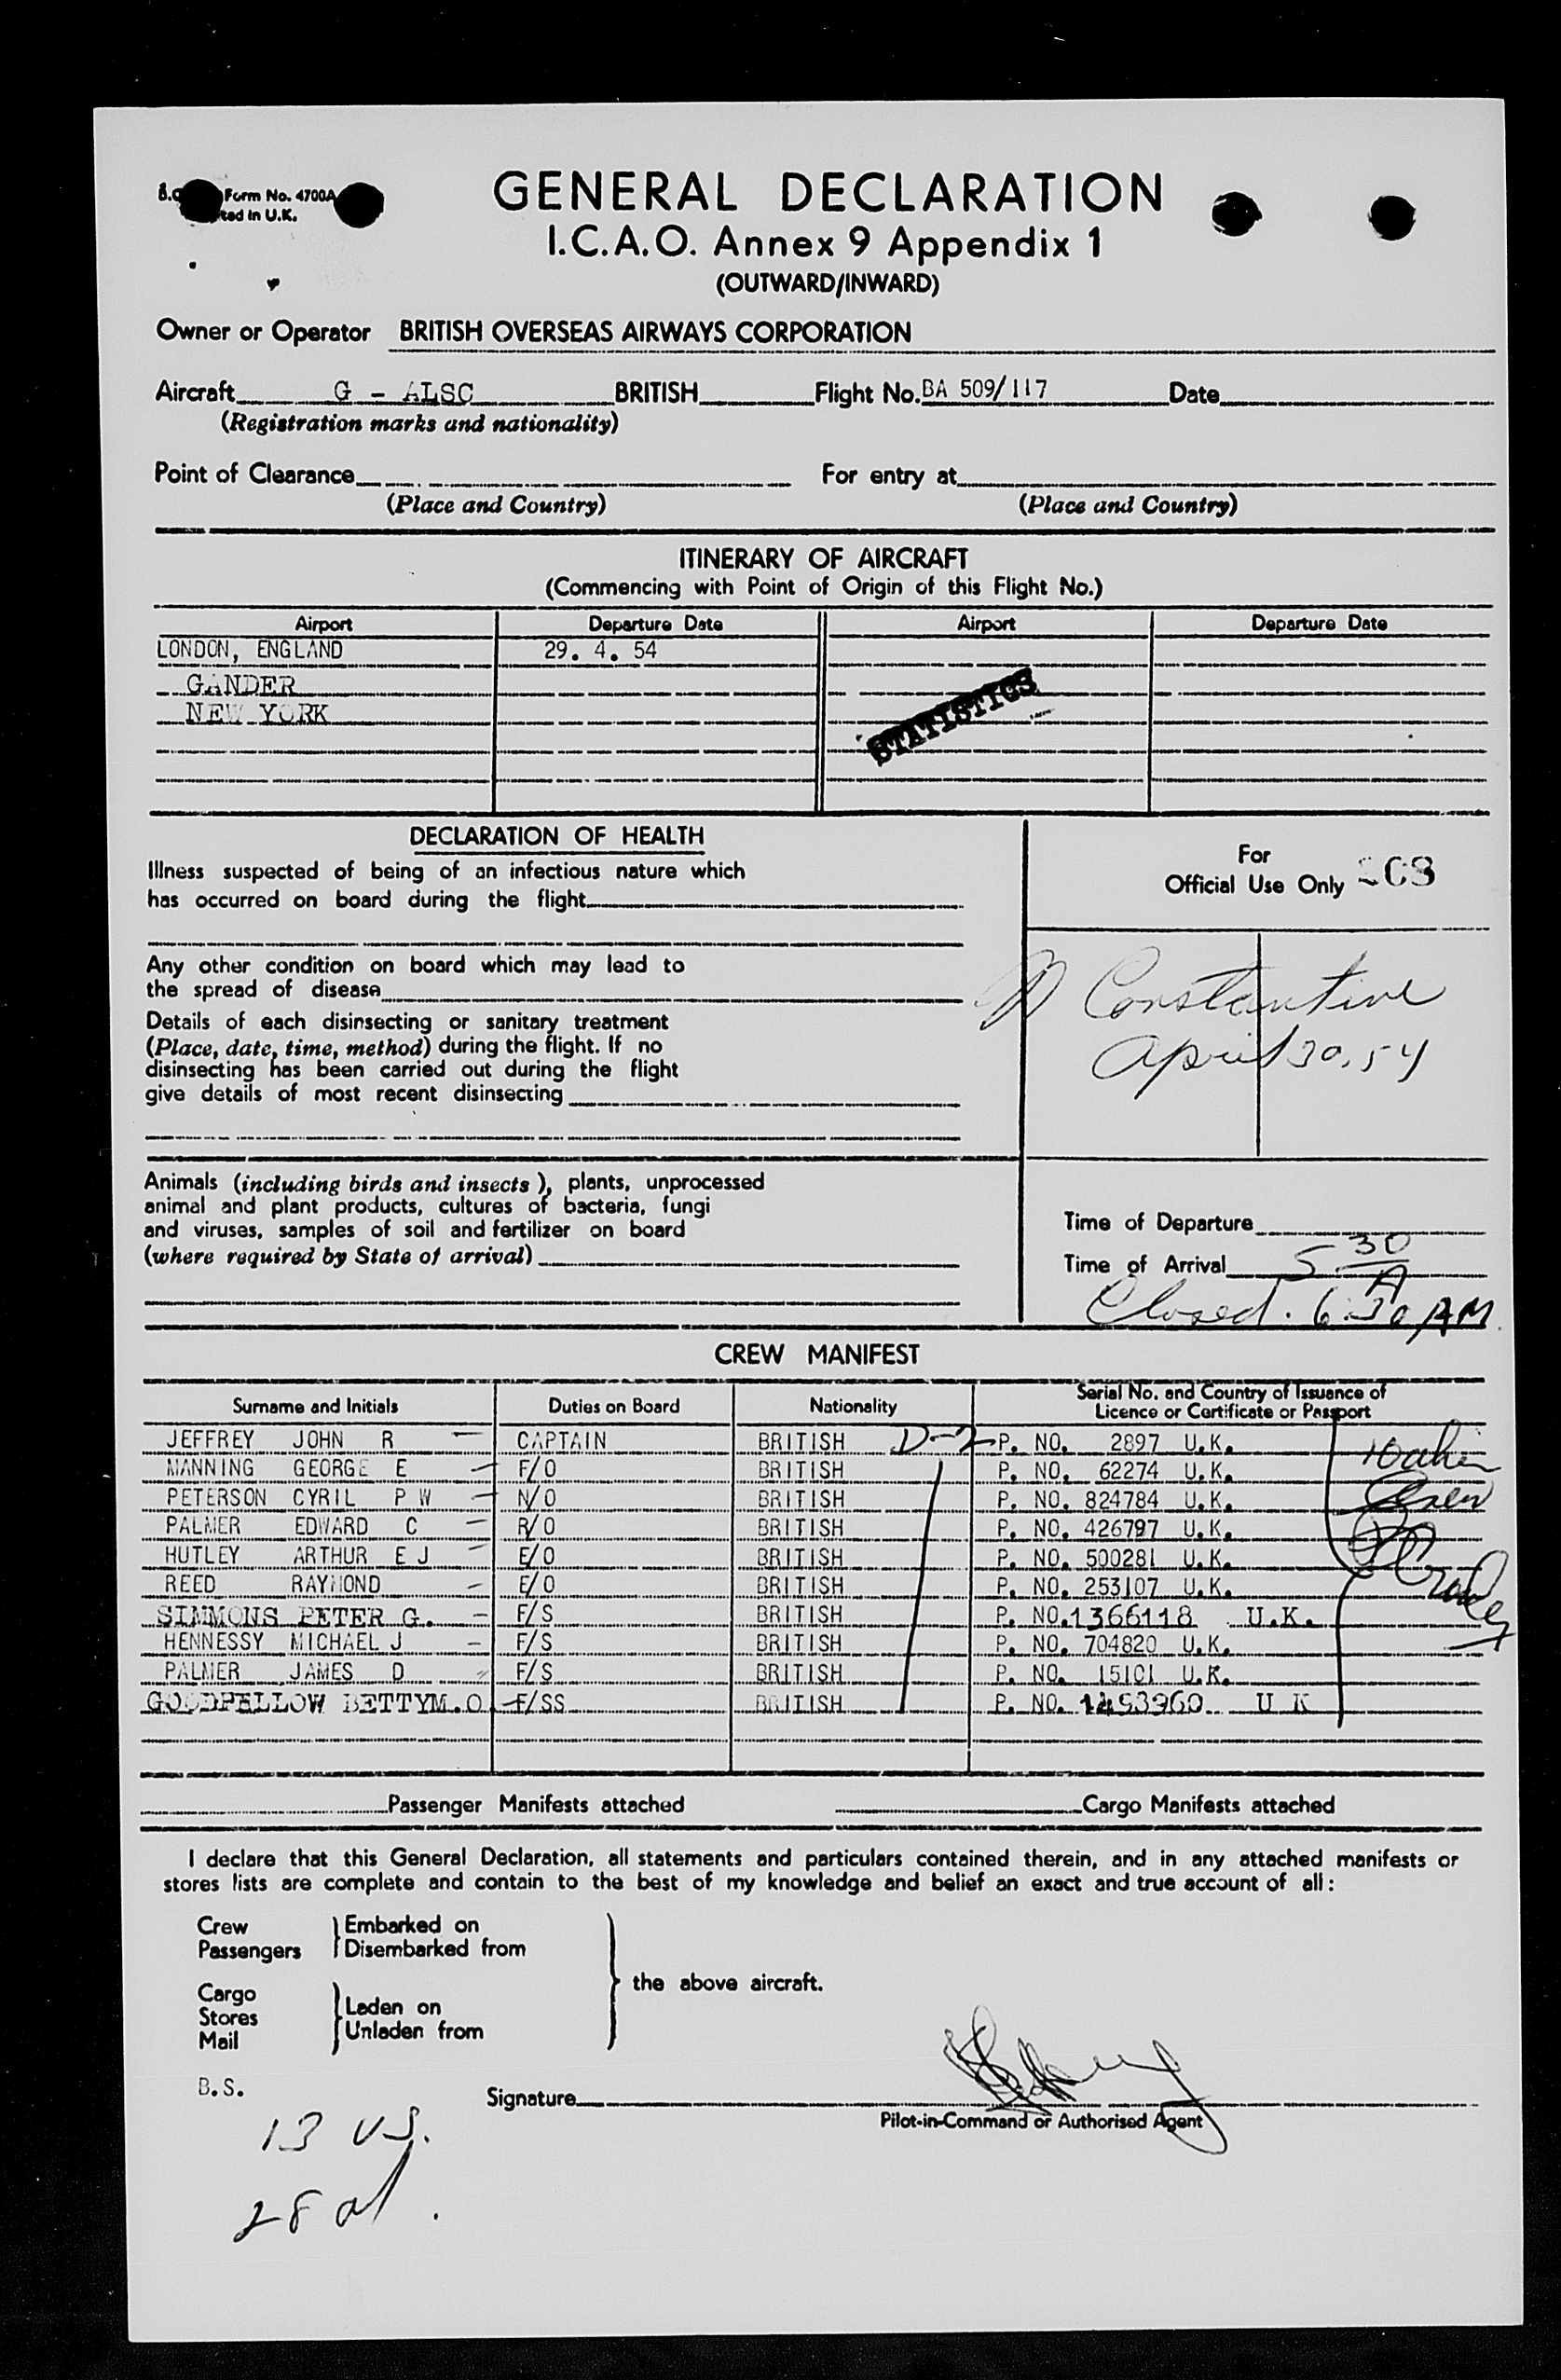 Form No. 4700A
ted in U.K.
GENERAL DECLARATION
I.C.A.O. Annex 9 Appendix 1
(OUTWARD/INWARD)
Owner or Operator BRITISH OVERSEAS AIRWAYS CORPORATION
Aircraft G - ALSC BRITISH Flight No. BA 509/117 Date
(Registration marks and nationality)
Point of Clearance For entry at
(Place and Country) (Place and Country)
ITINERARY OF AIRCRAFT
(Commencing with Point of Origin of this Flight No.)
Airport Departure Date Airport Departure Date
LONDON, ENGLAND 29. 4. 54
GANDER
NEW YORK
STATISTICS
DECLARATION OF HEALTH
Illness suspected of being of an infectious nature which
has occurred on board during the flight
Any other condition on board which may lead to
the spread of disease
Details of each disinsecting or sanitary treatment
(Place, date, time, method) during the flight. If no
disinsecting has been carried out during the flight
give details of most recent disinsecting
Animals (including birds and insects), plants, unprocessed
animal and plant products, cultures of bacteria, fungi
and viruses, samples of soil and fertilizer on board
(where required by State of arrival)
For
Official Use Only
Constantine
April 30, 54
Time of Departure
Time of Arrival 5 30 A
Closed. 6:30 AM
CREW MANIFEST
Surname and Initials Duties on Board Nationality Serial No. and Country of Issuance of Licence or Certificate or Passport
JEFFREY JOHN R — CAPTAIN BRITISH D-2 P. NO. 2897 U.K.
MANNING GEORGE E — F/O BRITISH P. NO. 62274 U.K.
PETERSON CYRIL P W — N/O BRITISH P. NO. 824784 U.K.
PALMER EDWARD C — R/O BRITISH P. NO. 426797 U.K.
HUTLEY ARTHUR E J — E/O BRITISH P. NO. 500281 U.K.
REED RAYMOND — E/O BRITISH P. NO. 253107 U.K.
SIMMONS PETER G. — F/S BRITISH P. NO. 1366118 U.K.
HENNESSY MICHAEL J — F/S BRITISH P. NO. 704820 U.K.
PALMER JAMES D — F/S BRITISH P. NO. 15101 U.K.
GOODFELLOW BETTY M.O. F/SS BRITISH P. NO. 1253960 U K
Passenger Manifests attached Cargo Manifests attached
I declare that this General Declaration, all statements and particulars contained therein, and in any attached manifests or
stores lists are complete and contain to the best of my knowledge and belief an exact and true account of all:
Crew Embarked on
Passengers Disembarked from
the above aircraft.
Cargo
Stores Laden on
Mail Unladen from
B.S.
Signature
Pilot-in-Command or Authorised Agent
13 US.
28 al.